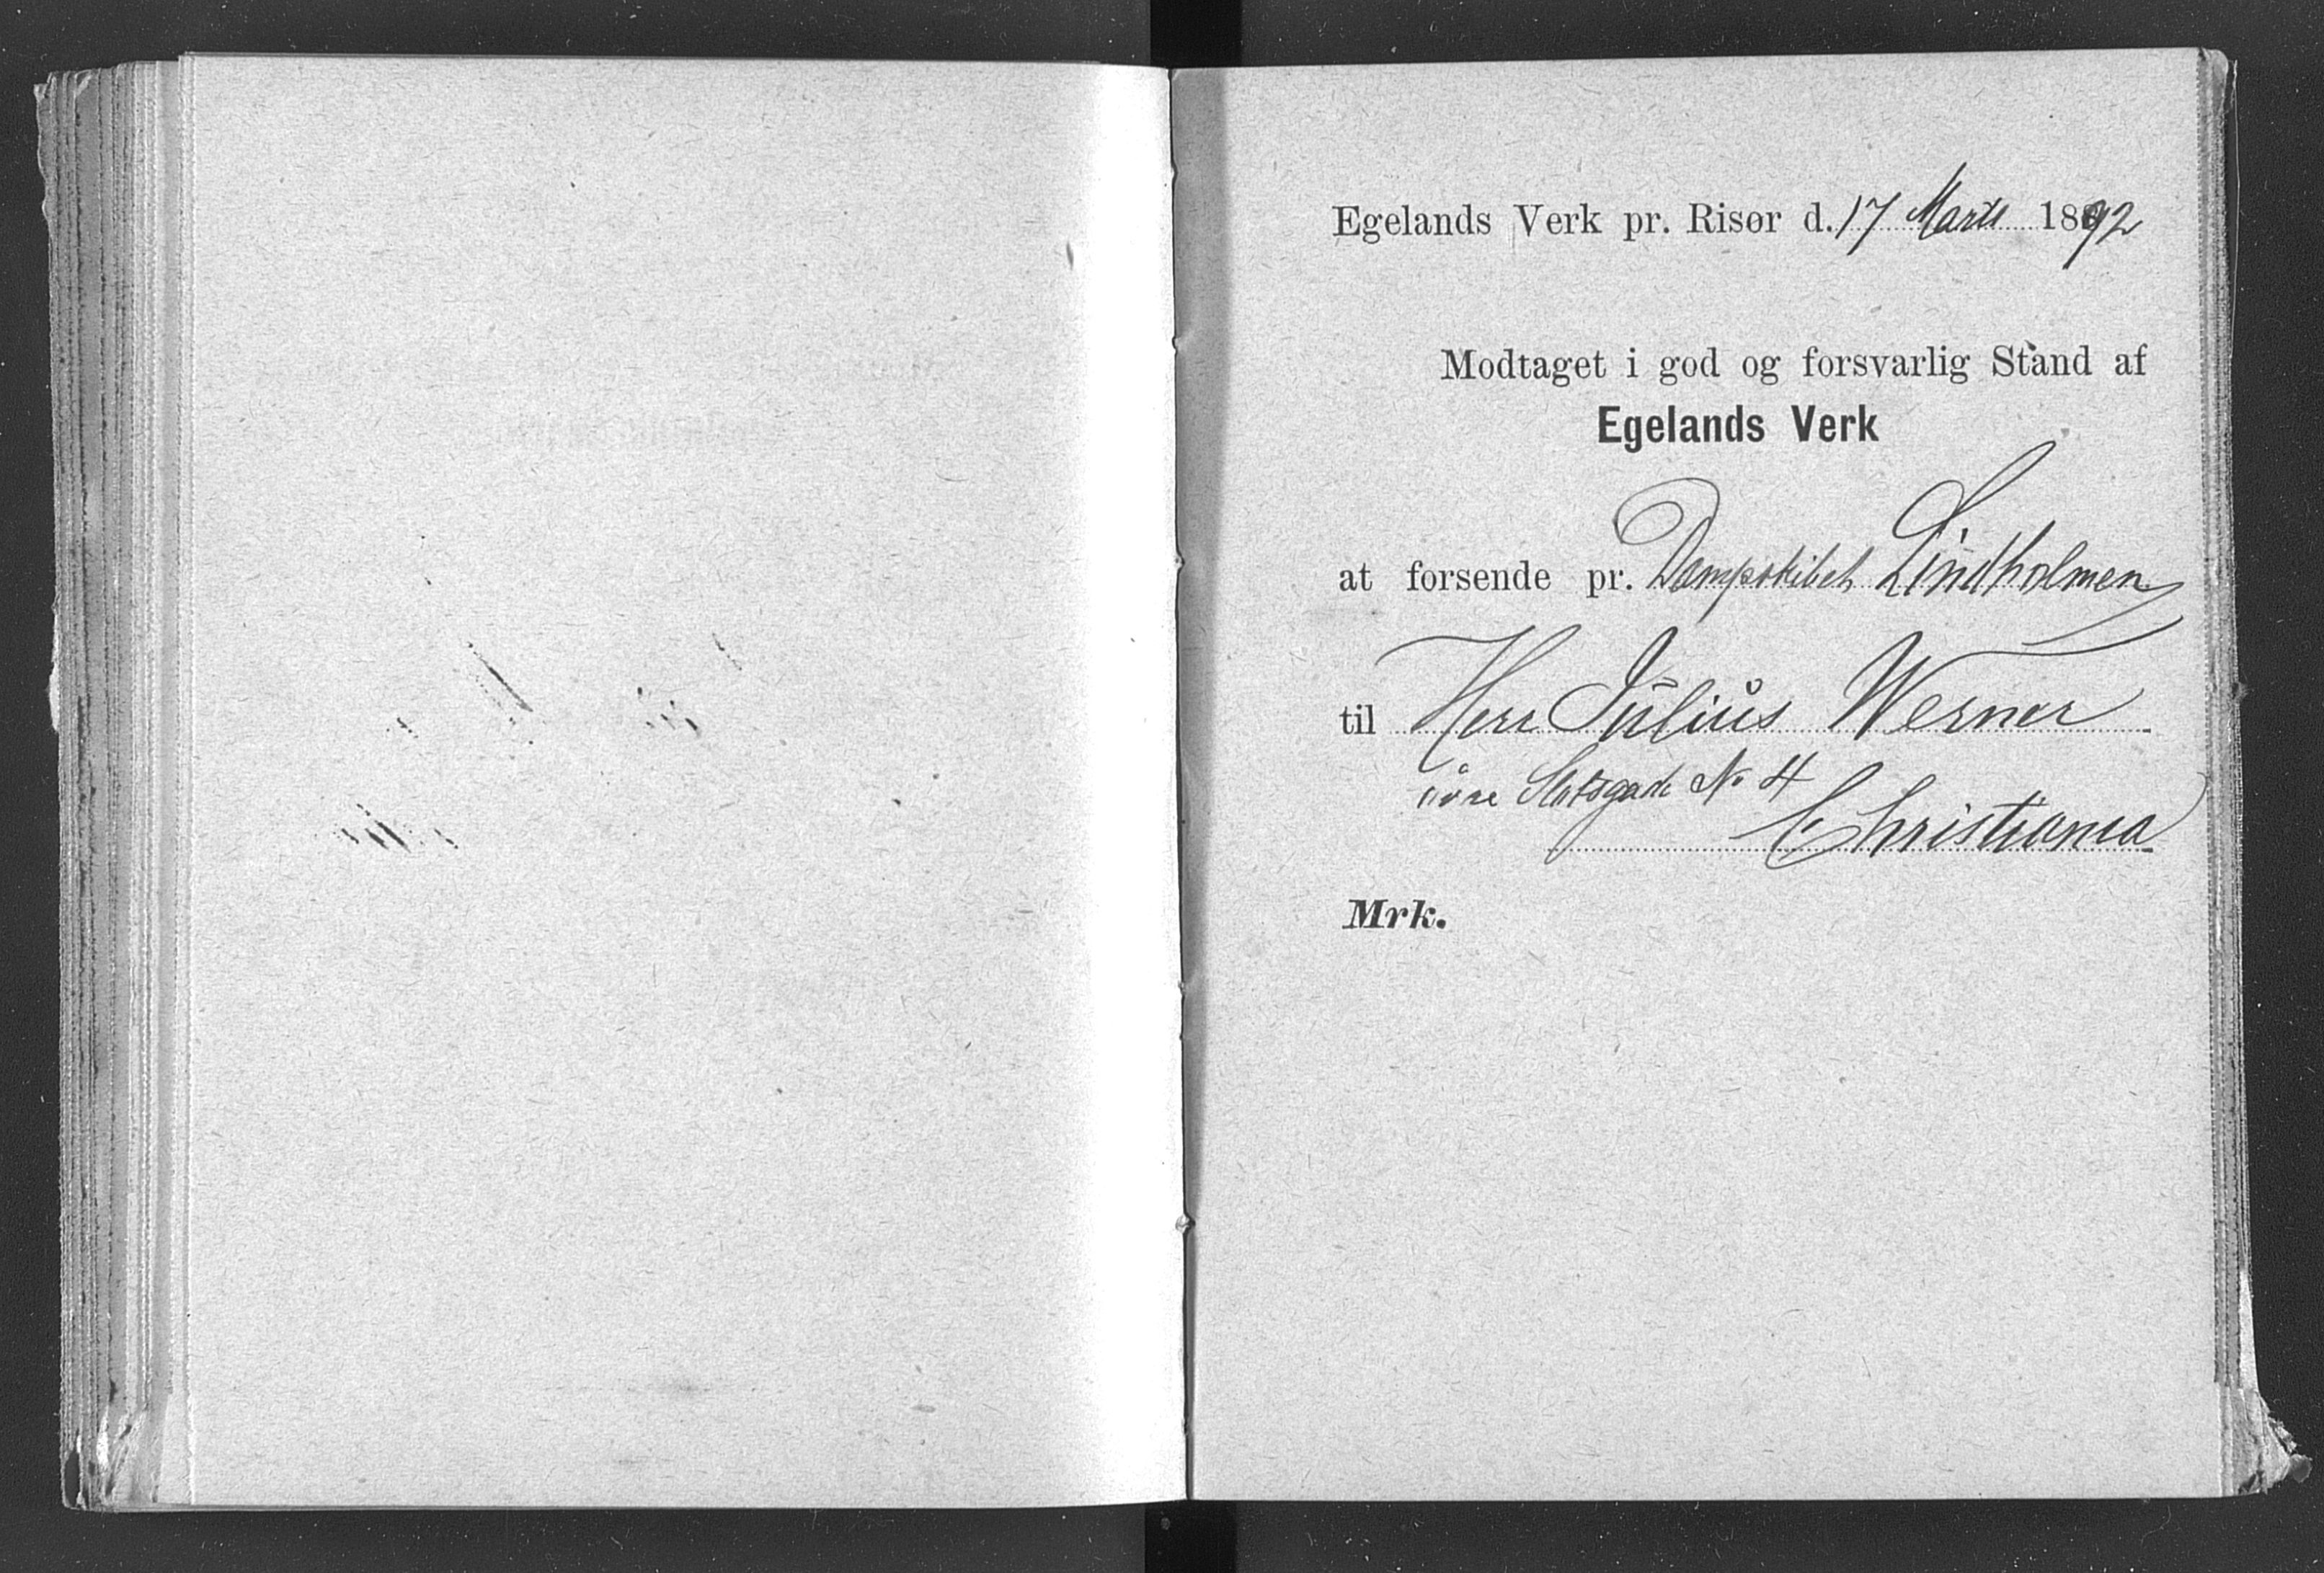 Egelands Verk pr. Risør d. 17 Marts 1892
Modtaget i god og forsvarlig Stand af
Egelands Verk
at forsende pr. Dampskibet Lindholmen
til Herr Julius Werner
övre Slotsgade No 4
Christiania
Mrk.